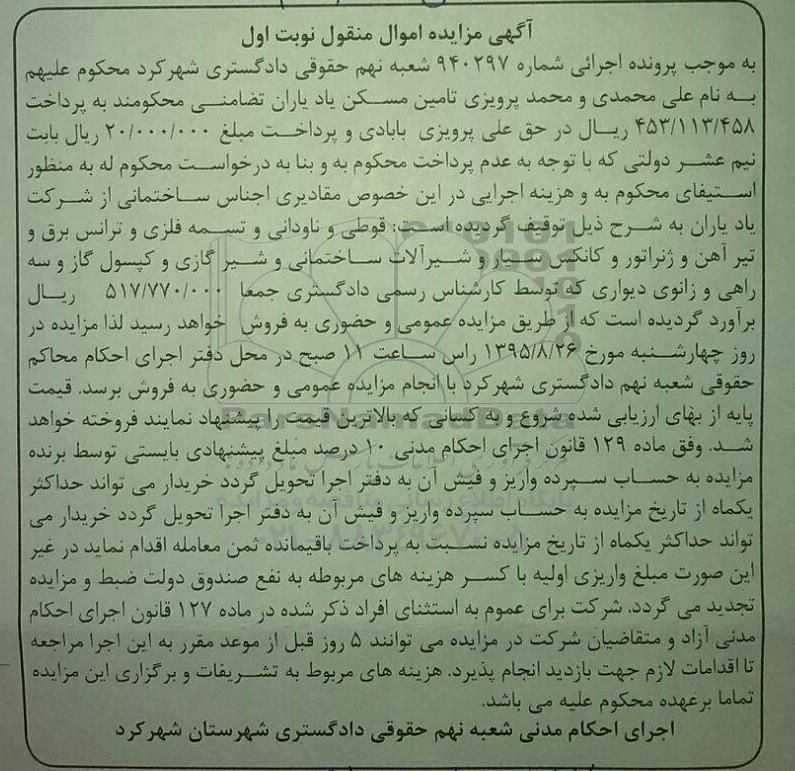 آگهی مزایده اموال منقول نوبت اول
به موجب پرونده اجرائی شماره ۹۴۰۲۹۷ شعبه نهم حقوقی دادگستری شهرکرد محکوم علیهم
به نام علی محمدی و محمد پرویزی تامین مسکن یاد یاران تضامنی محکومند به پرداخت
۴۵۳/۱۱۳/۴۵۸ ریال در حق علی پرویزی بابادی و پرداخت مبلغ ۲۰/۰۰۰/۰۰۰ ریال بابت
نیم عشر دولتی که با توجه به عدم پرداخت محکوم به و بنا به درخواست محکوم له به منظور
استیفای محکوم به و هزینه اجرایی در این خصوص مقادیری اجناس ساختمانی از شرکت
یاد یاران به شرح ذیل توقیف گردیده است: قوطی و ناودانی و تسمه فلزی و ترانس برق و
تیر آهن و ژنراتور و کانکس سیار و شیرآلات ساختمانی و شیر گازی و کپسول گاز و سه
راهی و زانوی دیواری که توسط کارشناس رسمی دادگستری جمعا ۵۱۷/۷۷۰/۰۰۰ ریال
برآورد گردیده است که از طریق مزایده عمومی و حضوری به فروش خواهد رسید لذا مزایده در
روز چهارشنبه مورخ ۱۳۹۵/۸/۲۶ راس ساعت ۱۱ صبح در محل دفتر اجرای احکام محاکم
حقوقی شعبه نهم دادگستری شهرکرد با انجام مزایده عمومی و حضوری به فروش برسد. قیمت
پایه از بهای ارزیابی شده شروع و به کسانی که بالاترین قیمت را پیشنهاد نمایند فروخته خواهد
شد. وفق ماده ۱۲۹ قانون اجرای احکام مدنی ۱۰ درصد مبلغ پیشنهادی بایستی توسط برنده
مزایده به حساب سپرده واریز و فیش آن به دفتر اجرا تحویل گردد خریدار می تواند حداکثر
یکماه از تاریخ مزایده به حساب سپرده واریز و فیش آن به دفتر اجرا تحویل گردد خریدار می
تواند حداکثر یکماه از تاریخ مزایده نسبت به پرداخت باقیمانده ثمن معامله اقدام نماید در غیر
این صورت مبلغ واریزی اولیه با کسر هزینه های مربوطه به نفع صندوق دولت ضبط و مزایده
تجدید می گردد. شرکت برای عموم به استثنای افراد ذکر شده در ماده ۱۲۷ قانون اجرای احکام
مدنی آزاد و متقاضیان شرکت در مزایده می توانند ۵ روز قبل از موعد مقرر به این اجرا مراجعه
تا اقدامات لازم جهت بازدید انجام پذیرد. هزینه های مربوط به تشریفات و برگزاری این مزایده
تماما برعهده محکوم علیه می باشد.
اجرای احکام مدنی شعبه نهم حقوقی دادگستری شهرستان شهرکرد
ParsNamadData